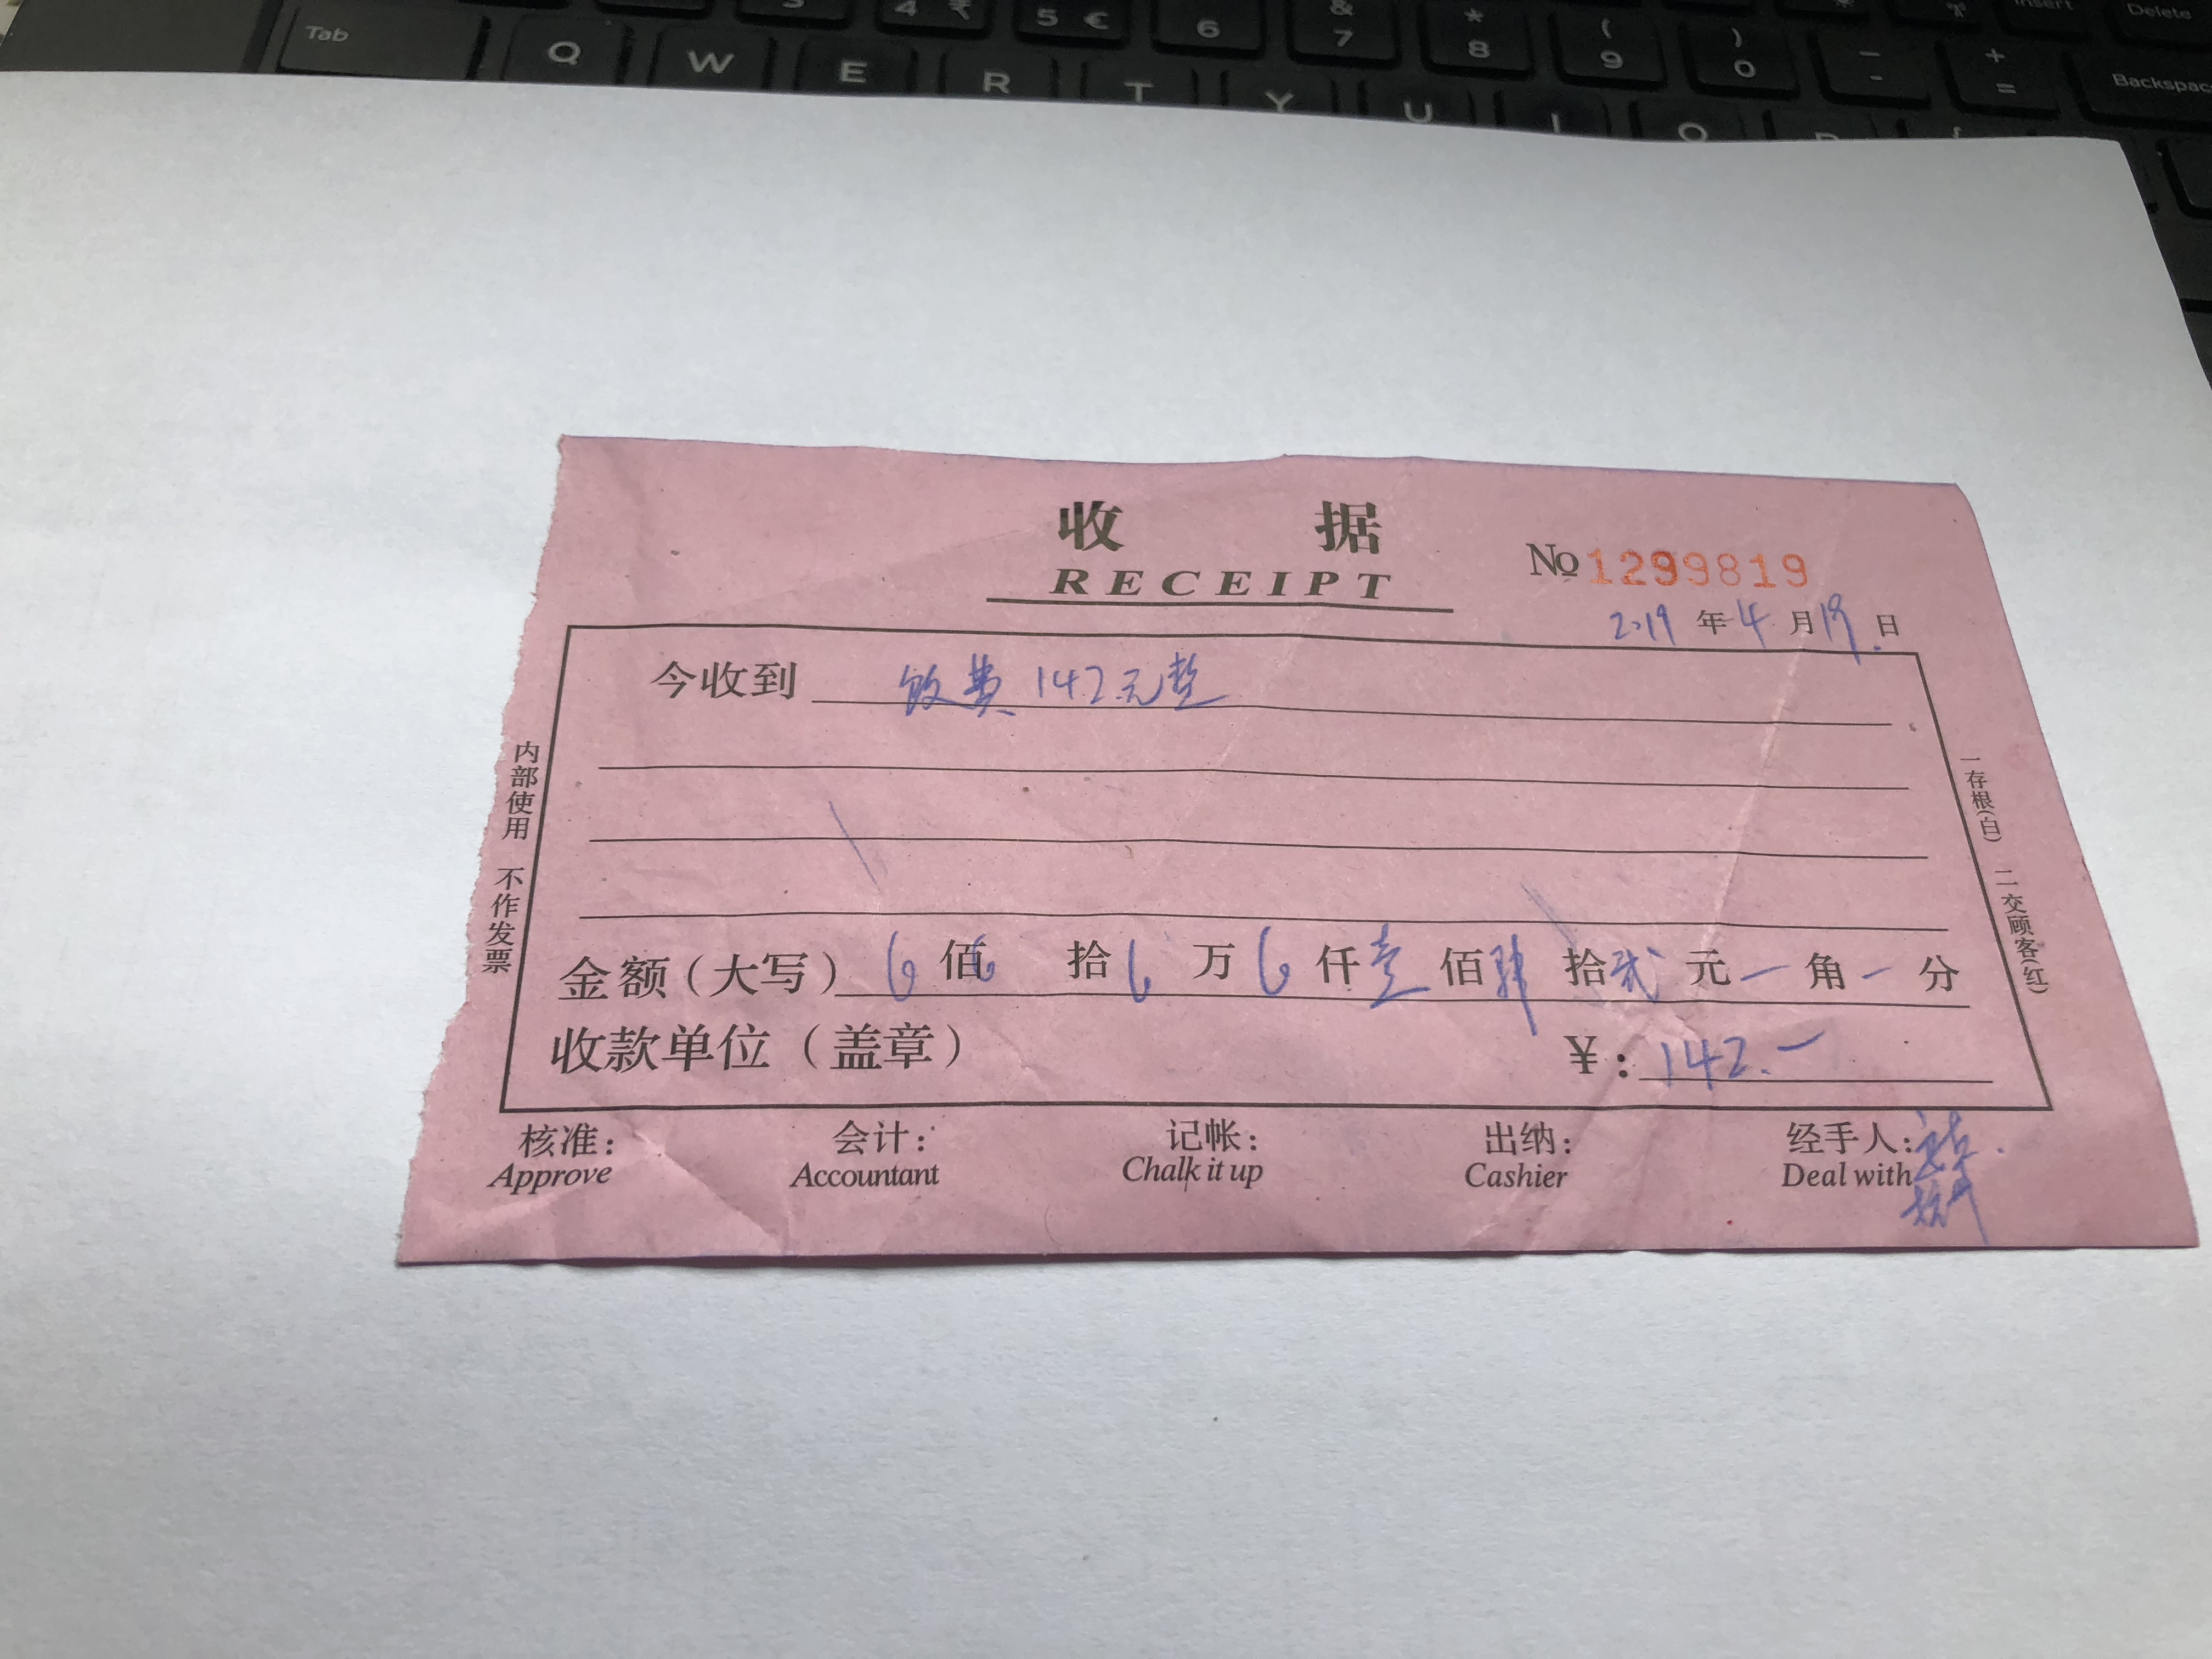 Tab 4 ₹ 5 € 6 & 7 * 8 ( 9 ) 0 - + = Insert Delete Backspace
Q W E R T Y U I O P {
收 据
RECEIPT
№1299819
2019 年 4 月 19 日
今收到 饭费 142元整
金额（大写） 佰 拾 万 仟 壹 佰 肆 拾 贰 元 一 角 一 分
收款单位（盖章） ¥：142.一
核准： 会计： 记帐： 出纳： 经手人：
Approve Accountant Chalk it up Cashier Deal with
内部使用 不作发票
一存根(白) 二交顾客(红)